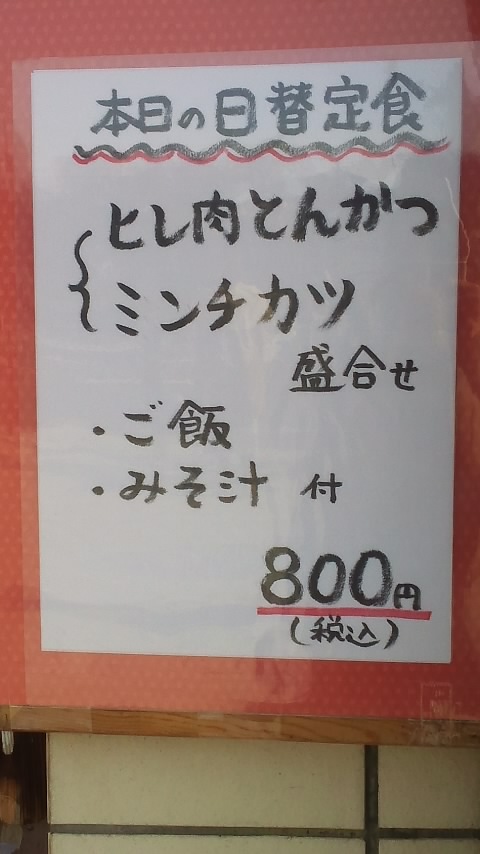 本日の日替定食
ヒレ肉とんかつ
ミンチカツ
盛合せ
・ご飯
・みそ汁 付
800円
(税込)